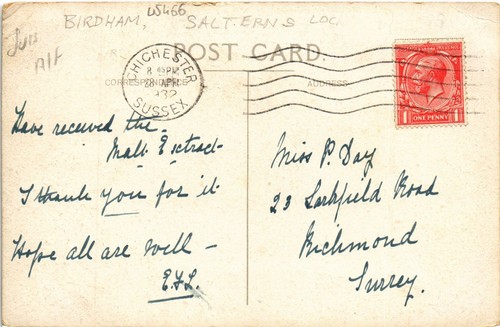 BIRDHAM, WS466 SALTERNS LOC
POST CARD.
CORRESPONDENCE
ADDRESS
CHICHESTER
8 PM
28 APR
1932
SUSSEX
ONE PENNY
Have received the
Malt Extract
I thank you for it
Hope all are well —
E.F.L.
Miss P. Day
23 Larkfield Road
Richmond
Surrey.